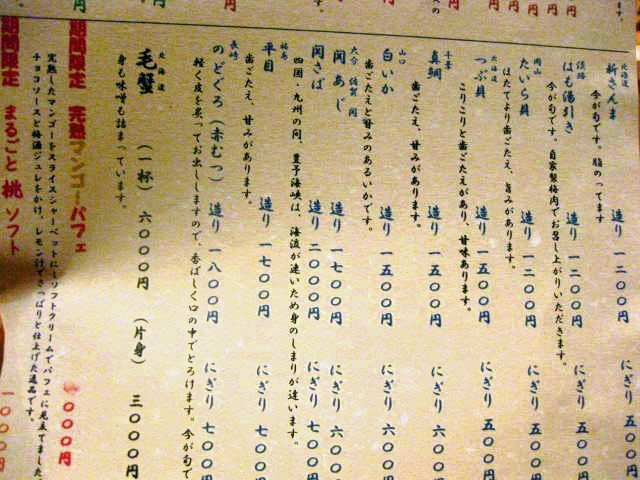 北海道
新さんま 造り 一二〇〇円 にぎり 五〇〇
今が旬です。脂のってます
淡路
はも湯引き 造り 一二〇〇円 にぎり 五〇〇
今が旬です。自家製梅肉でお召し上がりいただきます。
岡山
たいら貝 造り 一二〇〇円 にぎり 五〇〇円
ほたてより歯ごたえ、旨みがあります。
北海道
つぶ貝 造り 一五〇〇円 にぎり 五〇〇円
こりこりと歯ごたえがあり、甘味あります。
千葉
真鯛 造り 一五〇〇円 にぎり 六〇〇円
歯ごたえ、甘みがあります。
山口
白いか 造り 一五〇〇円 にぎり 六〇〇円
歯ごたえと甘みのあるいかです。
大分 佐賀関
関あじ 造り 一七〇〇円 にぎり 六〇〇円
関さば 造り 二〇〇〇円 にぎり 七〇〇円
四国・九州の間、豊予海峡は、海流が速いため身のしまりが違います。
平目 造り 一七〇〇円 にぎり 七〇〇円
歯ごたえ、甘みがあります。
長崎
のどぐろ(赤むつ) 造り 一八〇〇円 にぎり 七〇〇
軽く皮を炙ってお出ししますので、香ばしく口の中でとろけます。今が旬で
北海道
毛蟹 (一杯) 六〇〇〇円 (片身) 三〇〇〇円
身も味噌も詰まっています。
期間限定 完熟マンゴーパフェ 〇〇〇円
完熟したマンゴーをスライスシャーベットにしソフトクリームでパフェに見立てました
チョコソースと梅酒ジュレをかけ、レモン汁でさっぱりと仕上げた逸品です。
期間限定 まるごと桃ソフト 一〇〇〇